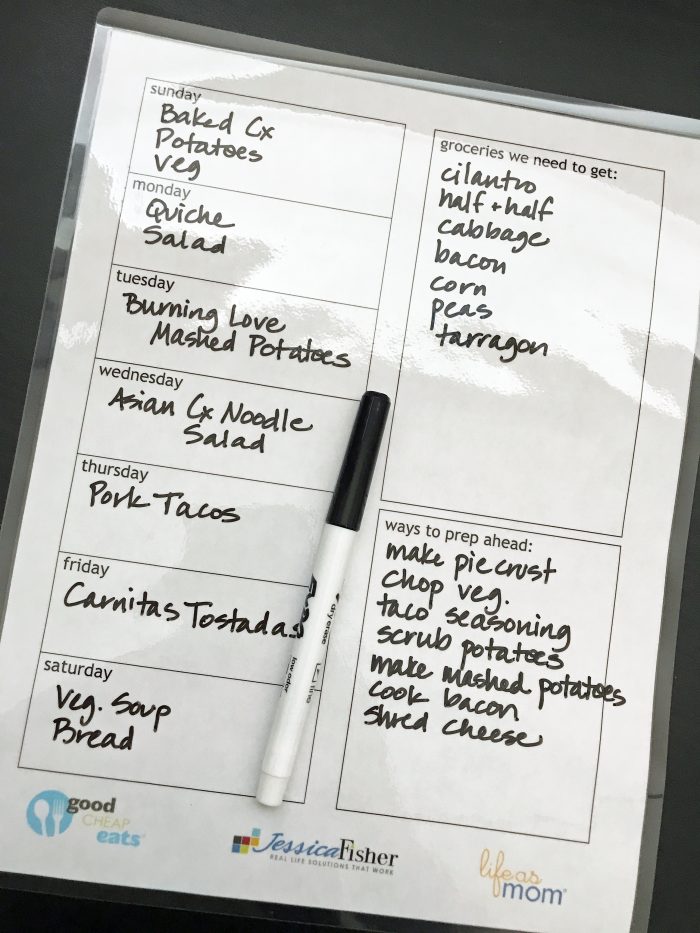 sunday
Baked Cx
Potatoes
Veg
monday
Quiche
Salad
tuesday
Burning Love
Mashed Potatoes
wednesday
Asian Cx Noodle
Salad
thursday
Pork Tacos
friday
Carnitas Tostadas
saturday
Veg. Soup
Bread
groceries we need to get:
cilantro
half + half
cabbage
bacon
corn
peas
tarragon
ways to prep ahead:
make pie crust
chop veg.
taco seasoning
scrub potatoes
make mashed potatoes
cook bacon
shred cheese
dry erase
low odor
good
CHEAP
eats
JessicaFisher
REAL LIFE SOLUTIONS THAT WORK
lifeas
mom